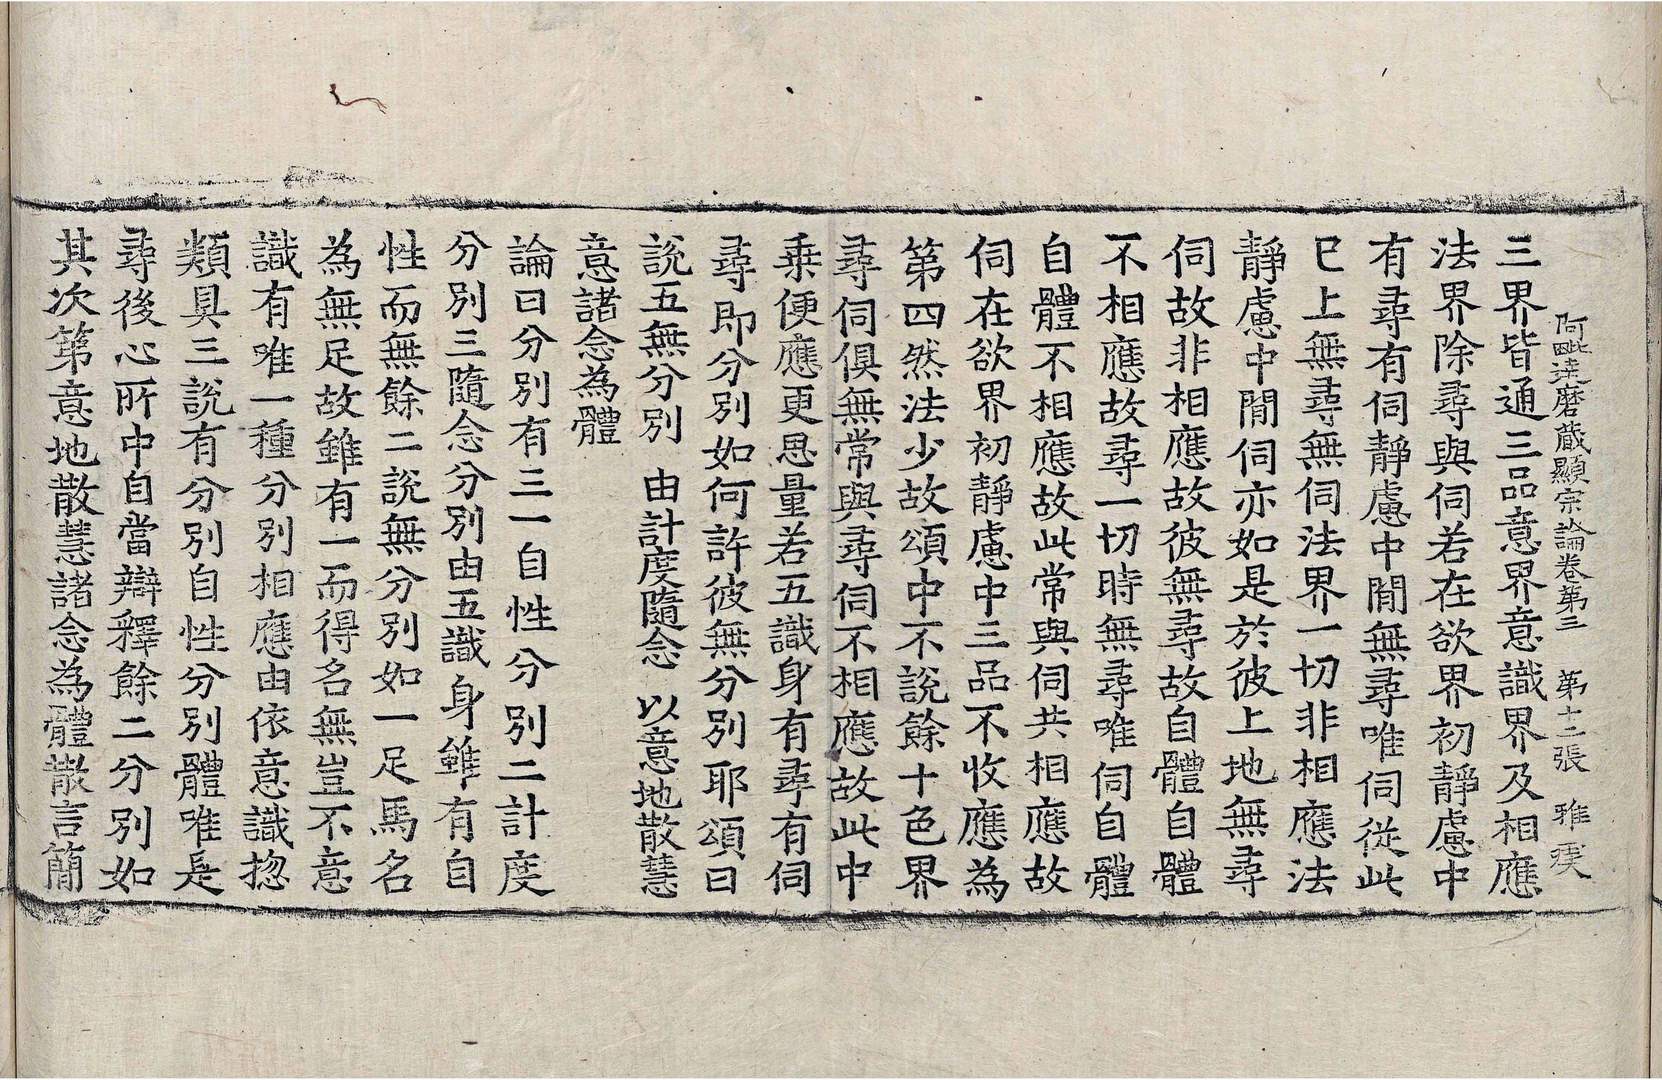 阿毗達磨藏顯宗論卷第三　第十二張　雅
三界皆通三品意界意識界及相應
法界除尋與伺若在欲界初靜慮中
有尋有伺靜慮中閒無尋唯伺從此
已上無尋無伺法界一切非相應法
靜慮中閒伺亦如是於彼上地無尋
伺故非相應故彼無尋故自體自體
不相應故尋一切時無尋唯伺自體
自體不相應故此常與伺共相應故
伺在欲界初靜慮中三品不收應為
第四然法少故頌中不說餘十色界
尋伺俱無常與尋伺不相應故此中
乗便應更思量若五識身有尋有伺
尋即分別如何許彼無分別耶頌曰
說五無分別　由計度隨念　以意地散慧
意諸念為體
論曰分別有三一自性分別二計度
分別三隨念分別由五識身雖有自
性而無餘二說無分別如一足馬名
為無足故雖有一而得名無豈不意
識有唯一種分別相應由依意識揔
類具三說有分別自性分別體唯是
尋後心所中自當辯釋餘二分別如
其次第意地散慧諸念為體散言簡